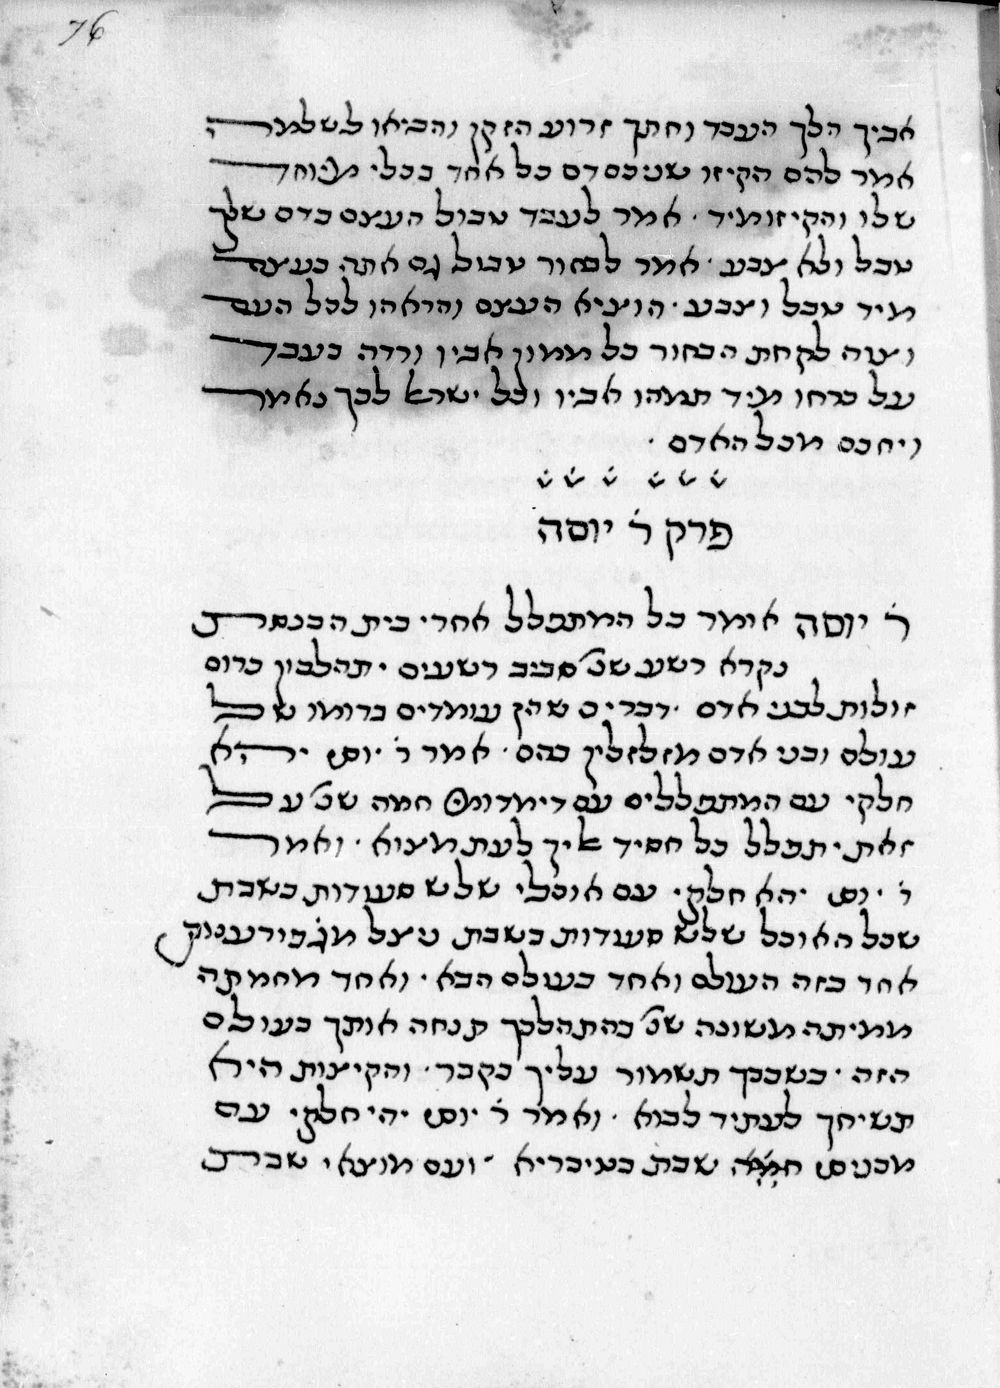 76
אביך הלך העבד וחתך זרוע הזקן והביאו לשלמה
אמר להם הקיזו שניכם דם כל אחד בכלי מיוחד
שלו והקיזו מיד · אמר לעבד טבול העצם בדם שלך
טבל ולא צבע · אמר לבחור טבול גם אתה בעצם
מיד טבל וצבע · הוציא העצם והראהו לכל העם
וצוה לקחת הבחור כל ממון אביו ורדה בעבד
על כרחו מיד תמהו אביו וכל ישראל לכך נאמר
ויחכם מכל האדם ·
פרק ר׳ יוסה
ר׳ יוסה אומר כל המתפלל אחרי בית הכנסת
נקרא רשע שנ׳ סביב רשעים יתהלכון כרום
זולות לבני אדם · דברים שהן עומדים ברומו של
עולם ובני אדם מזלזלין בהם · אמר ר׳ יוסי יהא
חלקי עם המתפללים עם דימדומי חמה שנ׳ על
זאת יתפלל כל חסיד אליך לעת מצוא · ואמר
ר׳ יוסי יהא חלקי עם אוכלי שלש סעודות בשבת
שכל האוכל שלש סעודות בשבת ניצל מג׳ פורענות
אחד בזה העולם ואחד בעולם הבא · ואחד מחמתה
ממיתה משונה שנ׳ בהתהלכך תנחה אותך בעולם
הזה · בשכבך תשמור עליך בקבר · והקיצות היא
תשיחך לעתיד לבוא · ואמר ר׳ יוסי יהי חלקי עם
מכניסי שבת בטיבריא · ועם מוצאי שבת